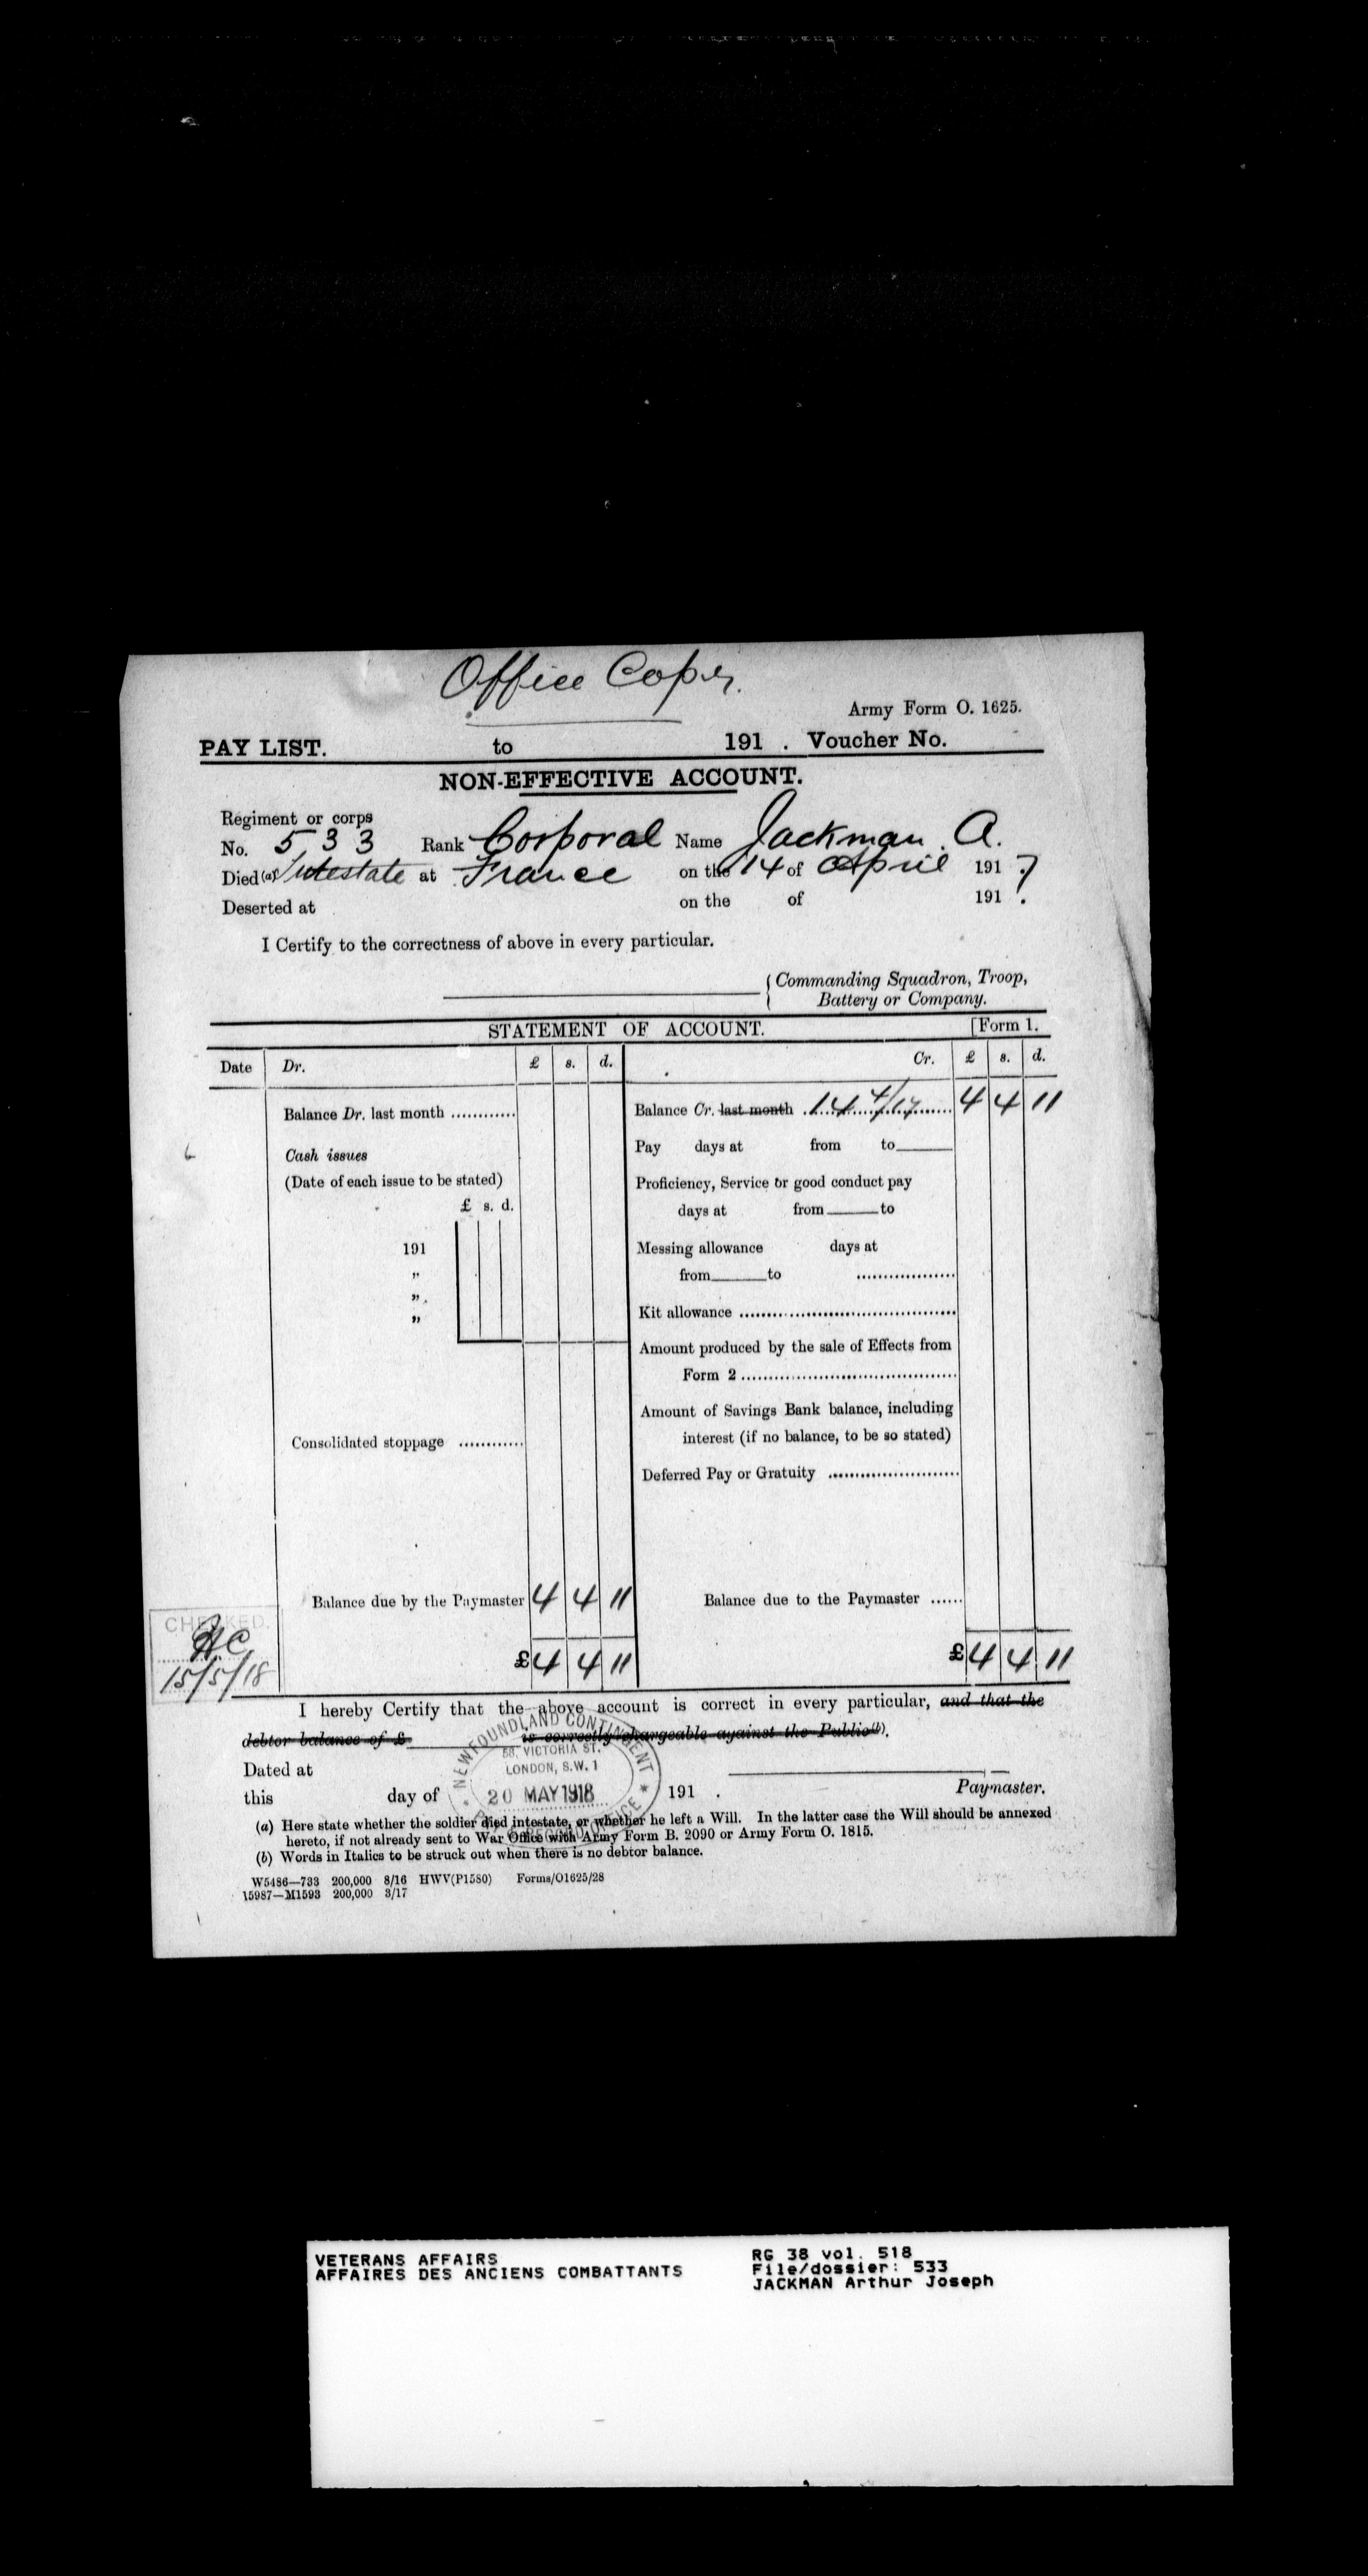 Office Copy.
Army Form O. 1625.
PAY LIST. to 191 . Voucher No.
NON-EFFECTIVE ACCOUNT.
Regiment or corps
No. 533 Rank Corporal Name Jackman. A.
Died (a) Intestate at France on the 14 of April 1917
Deserted at on the of 191 .
I Certify to the correctness of above in every particular.
Commanding Squadron, Troop,
Battery or Company.
STATEMENT OF ACCOUNT. [Form 1.
Date Dr. £ s. d. Cr. £ s. d.
Balance Dr. last month ............ Balance Cr. last month 14 4/17 4 4 11
Cash issues Pay days at from to
(Date of each issue to be stated) Proficiency, Service or good conduct pay
£ s. d. days at from to
191 Messing allowance days at
" from to ..................
"
" Kit allowance ........................................
Amount produced by the sale of Effects from
Form 2 ........................................
Amount of Savings Bank balance, including
Consolidated stoppage ............ interest (if no balance, to be so stated)
Deferred Pay or Gratuity ........................
Balance due by the Paymaster 4 4 11 Balance due to the Paymaster ......
CHECKED.
15/5/18
£ 4 4 11 £ 4 4 11
I hereby Certify that the above account is correct in every particular, and that the
debtor balance of £ is correctly chargeable against the Public(b).
NEWFOUNDLAND CONTINGENT
58, VICTORIA ST.
LONDON, S.W.1
20 MAY 1918
PAY & RECORD OFFICE
Dated at
this day of 191 . Paymaster.
(a) Here state whether the soldier died intestate, or whether he left a Will. In the latter case the Will should be annexed
hereto, if not already sent to War Office with Army Form B. 2090 or Army Form O. 1815.
(b) Words in Italics to be struck out when there is no debtor balance.
W5486—733 200,000 8/16 HWV(P1580) Forms/O1625/28
15987—M1593 200,000 3/17
VETERANS AFFAIRS
AFFAIRES DES ANCIENS COMBATTANTS
RG 38 vol. 518
File/dossier: 533
JACKMAN Arthur Joseph